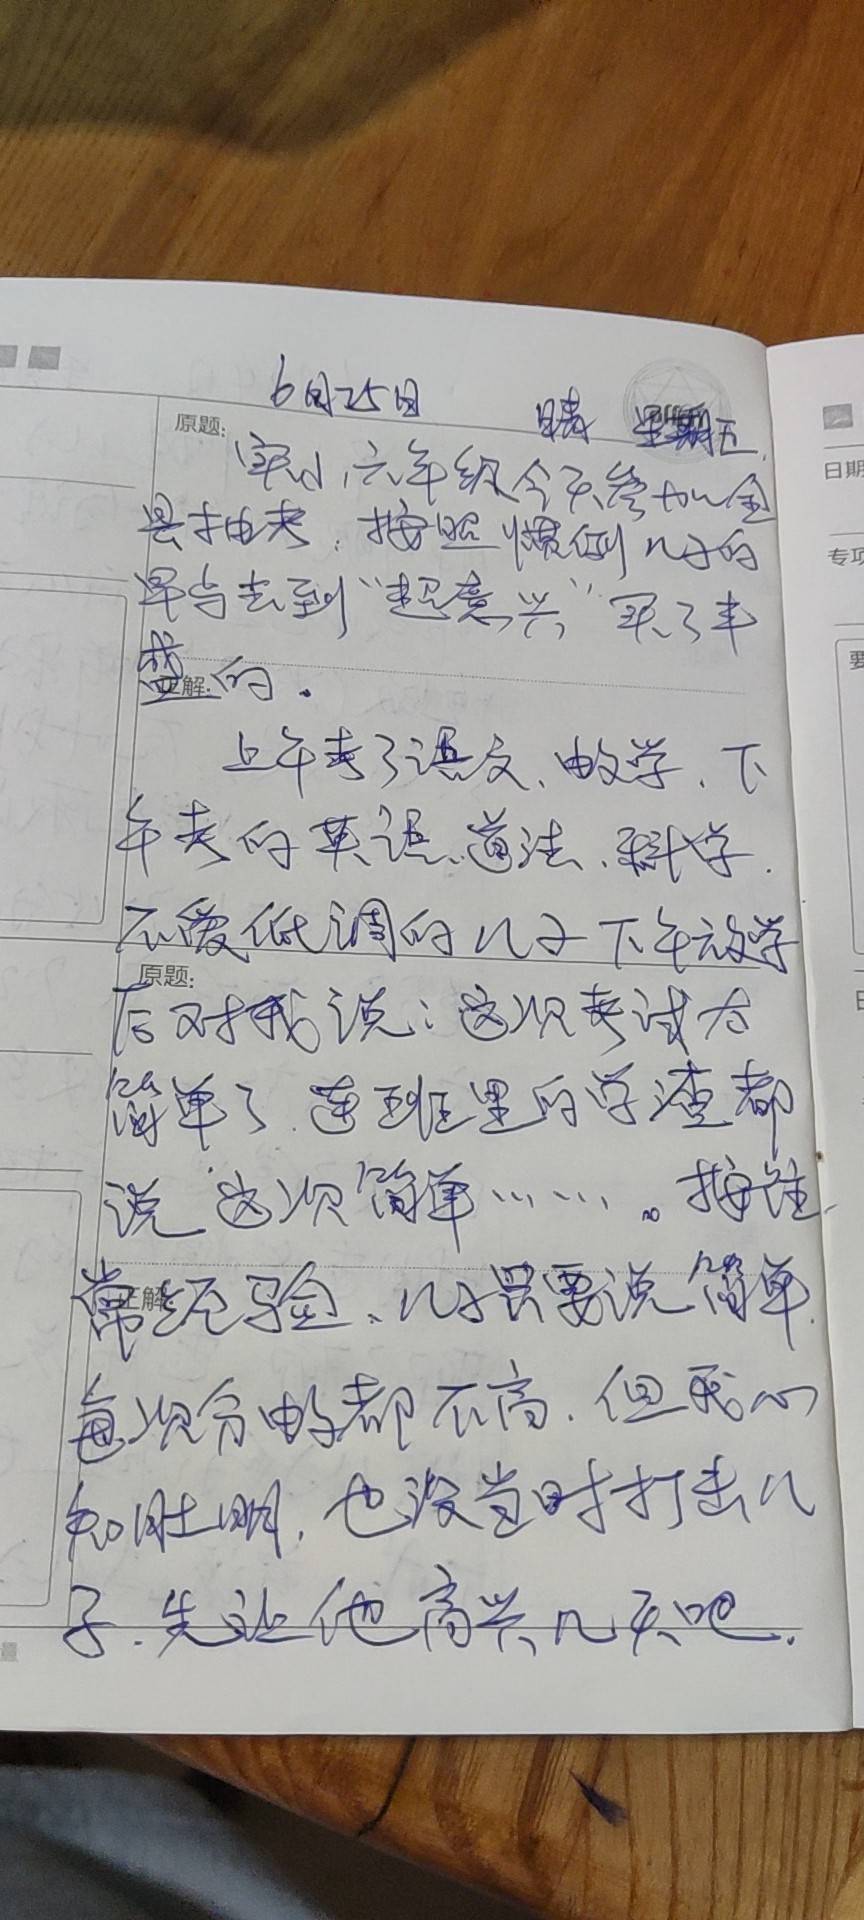 6月25日 晴 星期五
原题:
实小六年级今天参加全
县抽考，按照惯例儿子的
早与去到“超意兴”买了丰
盛的。
正解:
上午考了语文、数学，下
午考的英语、道法、科学，
不爱低调的儿子下午放学
原题:
后对我说：这次考试太
简单了，连班里的学渣都
说这次简单……。按往
常经验，儿子只要说简单，
正解:
每次分数都不高，但我心
知肚明，也没当时打击儿
子，先让他高兴几天吧，
日期
专项
要